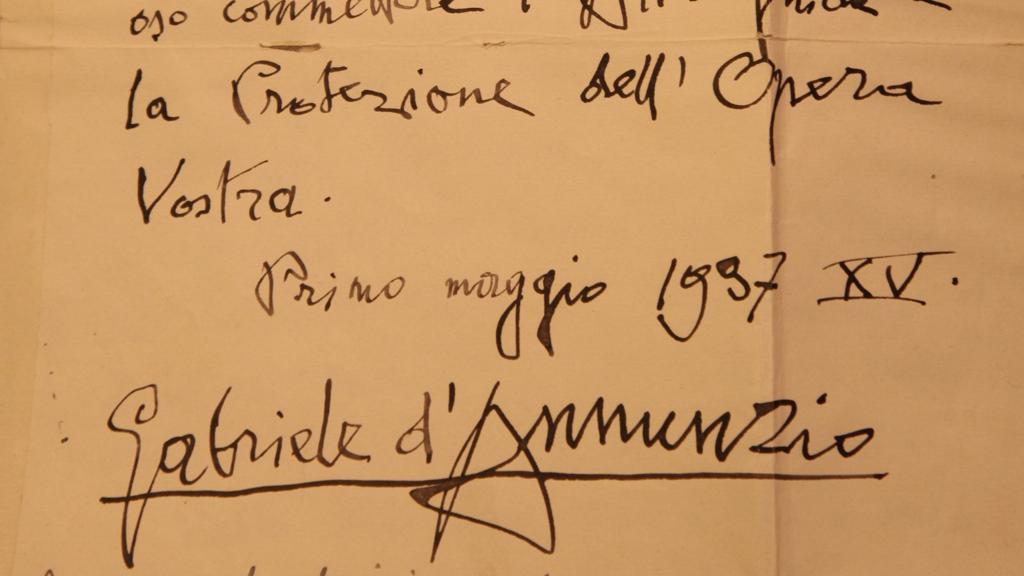 oso commettere
la Protezione dell' Opera
Vostra.
Primo maggio 1937 XV.
Gabriele d'Annunzio